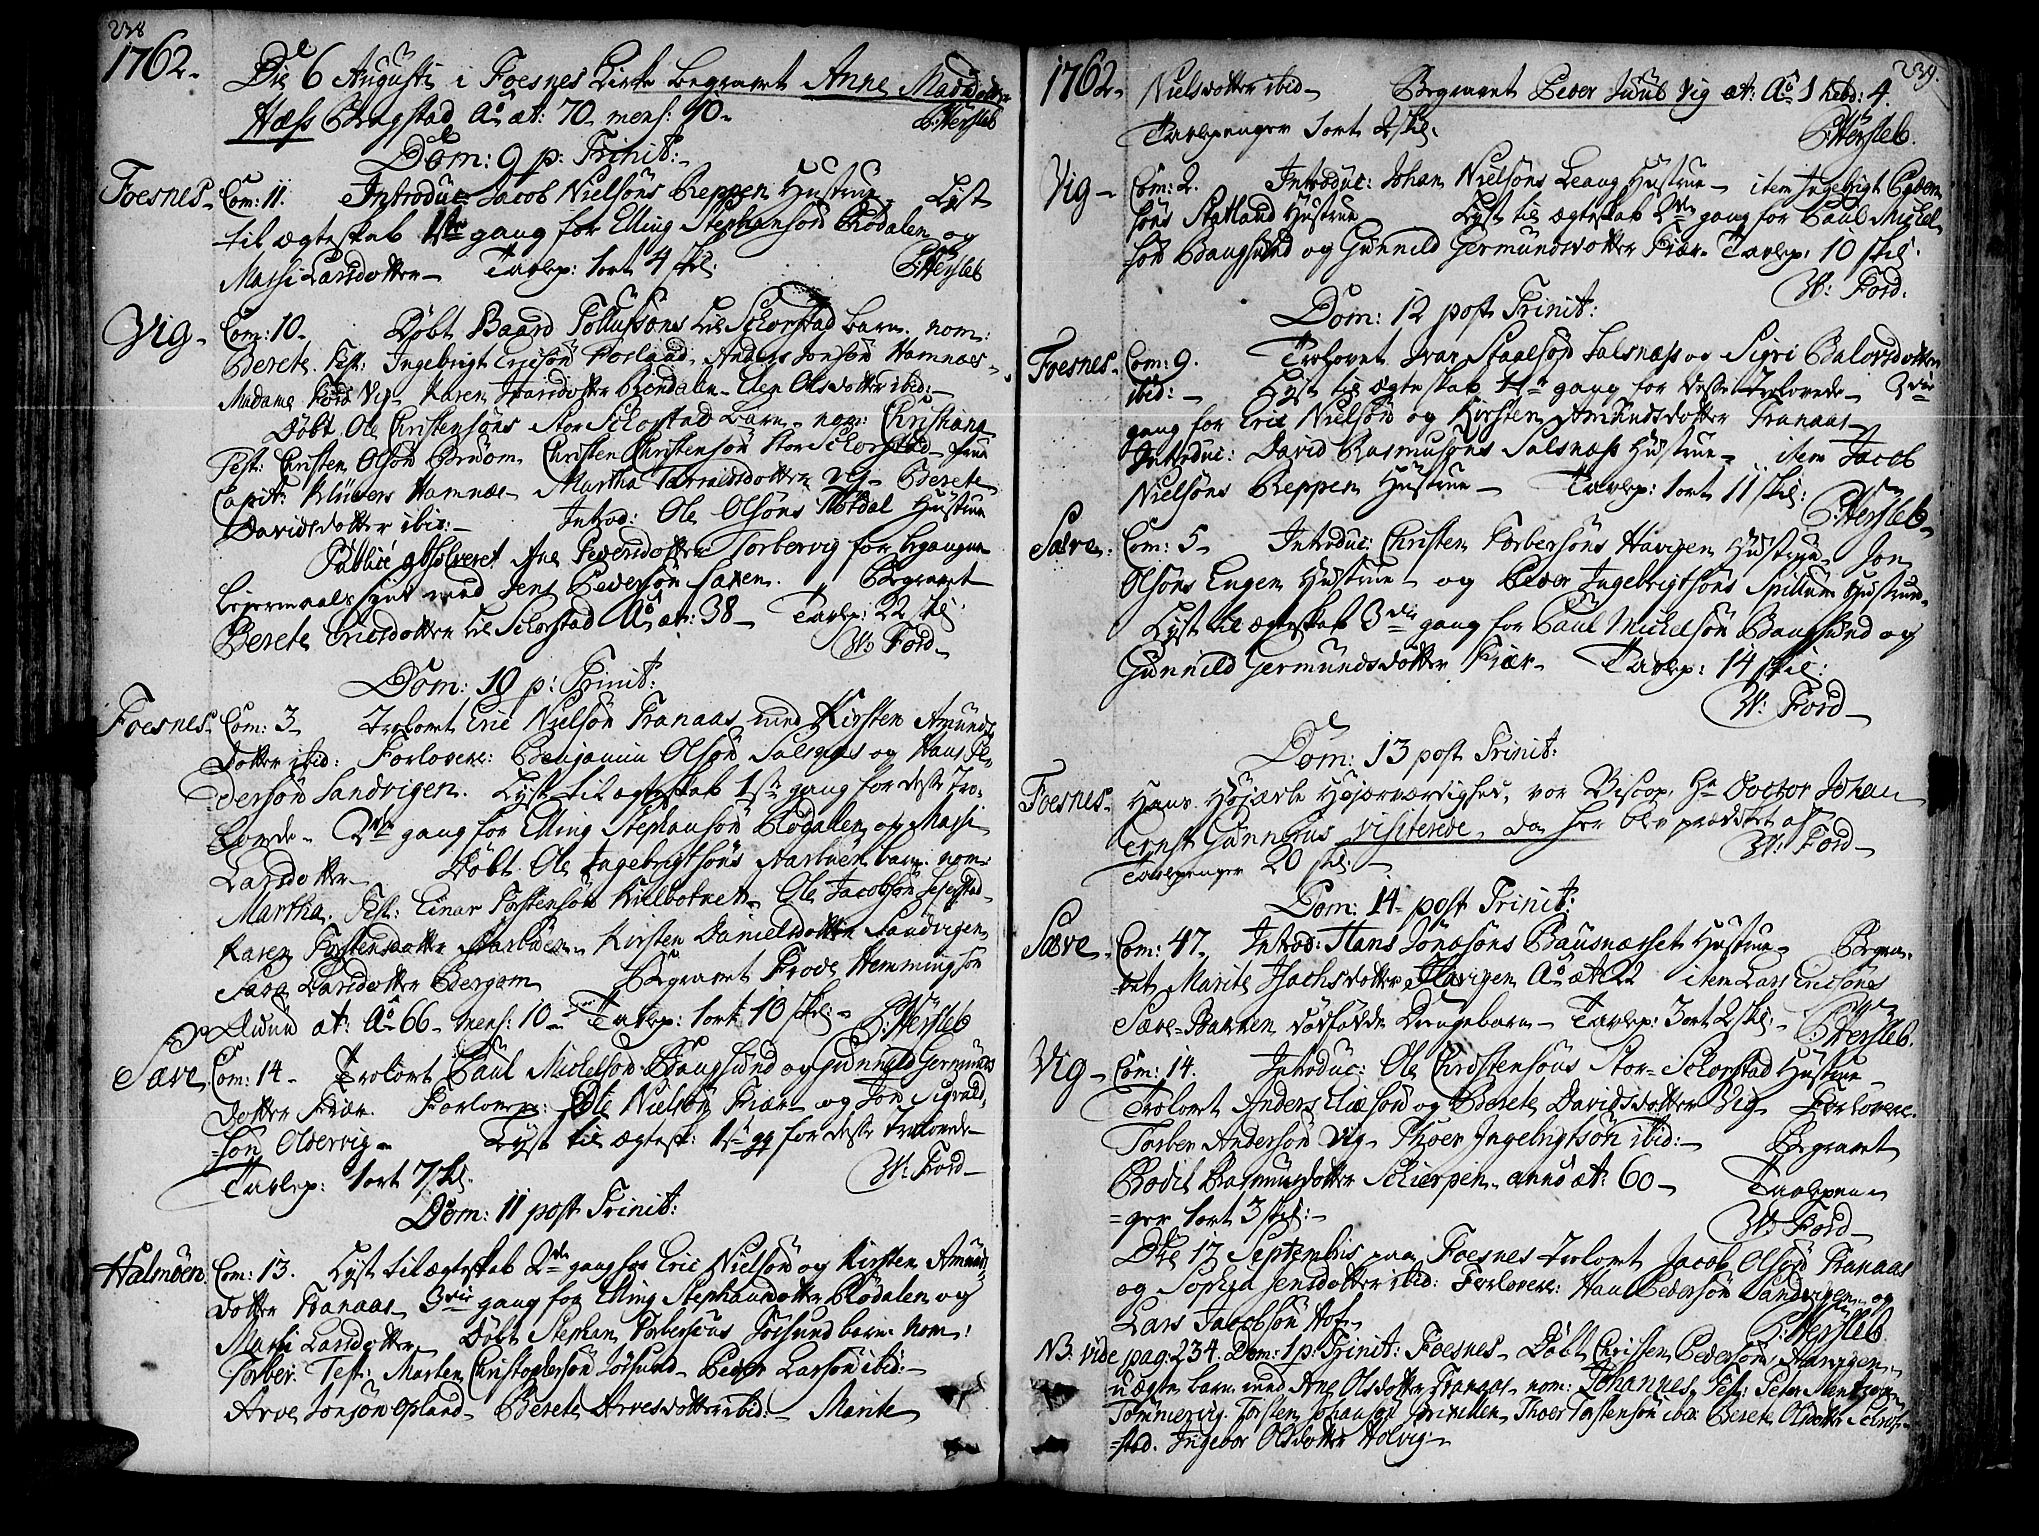 238
1762.
Die 6 Augusti i Foesnes Kirke begravet Anne Madsdotter
Hæss Bragstad Ao æt: 70 mens: 10.
P: Hersleb
Dom: 9 p: Trinit:
Foesnes. Com: 11. Introduc: Jacob Nielsöns Reppen Hustrue. Lyst
til ægteskab 1ste gang for Elling Stephansön Rödalen og
Massi Larsdotter. Tavlep: 1 ort 4 skl:
P: Hersleb
Vig. Com: 10. Döbt Baard Pollussöns Lil Schorstad barn. nom:
Berete. Test: Ingebrigt Ericsön Anders Jonsön Hamnaes.
Madame Ford Vig. Karen Ivarsdotter Rendalen. Elen Olsdotter ibid:
Döbt Ole Christensöns Stor Schorstad barn. nom: Christiana
Test: Christen Olsön Christen Christensön Stor Schorstad. Frue
Capit: Klüvers Hamnæs. Martha Vig. Berete
Davidsdotter ibid: Introd: Ole Olsöns Hustrue
Publicé absolveret Ane Pedersdotter Torbervig for begangne
Leiermaals synd med Jens Pedersön Saxen. Begravet
Berete Ericsdotter Lil Schorstad Ao æt: 38 Tavlep: 22 skl:
W: Ford
Dom: 10 p: Trinit:
Foesnes. Com: 3 Trolovt Eric Nielsön Tranaas med Kirsten Amunds
dotter ibid: Forlovere: Benjamin Olsön Salsnæs og Hans Pe-
dersön Sandvigen. Lyst til ægteskab 1ste gang for desse Tro-
lovede. 2den gang for Elling Stephansön Rödalen og Massi
Larsdotter Döbt Ole Ingebrigtsöns Aarbuen barn. nom:
Martha. Test: Einar Torstensön Kielbotnet. Ole Jacobsön
Karen Torstensdotter Aarbuen. Kirsten Danielsdotter Sandvigen
Sara Larsdotter Begravet Frode Hemmingsön
Duun æt: Ao 66 mens: 10 Tavlep: 1 ort 10 skl:
P: Hersleb
Sæve Com: 14 Trolovt Paul Michelsön Bangsund og Gunnild Germunds
dotter Kiær. Forlovere: Ole Nielsön Kiær og Jon Sigvald-
sön Oldervig. Lyst til ægtesk: 1ste gg for desse Trolovede
Tavlep: 1 ort 7 skl.
W: Ford
Dom: 11 post Trinit:
Halmöen. Com: 13. Lyst til ægteskab 2den gang for Eric Nielsön og Kirsten Amund-
dotter Tranaas. 3die gang for Elling Rödalen og
Massi Larsdotter. Döbt Stephan Torbersöns Jösund barn. nom:
Torber. Test: Morten Christophersön Jösund. Peder Larsön ibid:
Arve Jonsön Opland. Berete Arvesdotter ibid: Marite
239.
1762. Nielsdotter ibid. Begravet Peder Juul Vig æt: Ao 1 hebd: 4.
Tavlepenger 1 ort 2 skl.
P: Hersleb.
Vig Com: 2. Introduc: Johan Nielsöns Leang Hustrue. item Ingebrigt Peder-
söns Statland Hustrue Lyst til ægteskab 2den gang for Paul Michel-
sön Bangsund og Gunnild Germundsdotter Kiær. Tavlep: 10 skl:
W: Ford.
Dom: 12 post Trinit:
Foesnes. Com: 9. Trolovet Ivar Staalsön Salsnæss og Sigri
ibid: Lyst til ægteskab 1ste gang for desse Trolovede 3die
gang for Eric Nielsön og Kirsten Amundsdotter Tranaas
Introduc: David Rasmusöns Salsnæss Hustrue. item Jacob
Nielsöns Reppen Hustrue Tavlep: 1 ort 11 skl:
P: Hersleb
Sæve. Com: 5 Introduc: Christen Torbersöns Havigen Hustrue. Jon
Olsöns Engen Hustrue og Peder Ingebrigtsöns Spillum Hustrue.
Lyst til ægteskab 3die gang for Paul Michelsön Bangsund og
Gunnild Germundsdotter Kiær. Tavlep: 14 skl:
W: Ford
Dom: 13 post Trinit:
Foesnes. Hans Höjædle Höjærværdighed, vor Biscop, Hr Doctor Johan
Ernst Gunnerus visiterede, da her blev prædiket af
Tavlepenger 20 skl:
W: Ford
Dom: 14 post Trinit:
Sæve. Com: 47. Introd: Hans Jonæsöns Bausnæsset Hustrue. Begra-
vet Marite Isachsdotter Havigen Ao æt 22 item Lars Ericsöns
Sæve-Barnen dödfödde Drengebarn Tavlep: 3 ort 2 skl:
P: Hersleb.
Vig Com: 14. Introduc: Ole Christensöns Stor-Schorstad Hustrue
Trolovt Anders Eliæsön og Berete Davidsdotter Vig. Forlovere.
Torber Andersön Vig. Thoer Ingebrigtsön ibid: Begravet
Bodil Rasmusdotter Schierpen. anno æt: 60 Tavlepen-
ger 1 ort 3 skl:
W: Ford
Die 17 Septembris paa Foesnes trolovt Jacob Olsön Tranaas
og Sophia Jensdotter ibid: Forlovere: Hans Pedersön Sandvigen og
Lars Jacobsön Hof.
P: Hersleb
NB: vide pag: 234. Dom: 1 p: Trinit: Foesnes. Döbt Christen Pedersöns
uægte barn med Ane Olsdotter Tranaas. nom: Johannes. Test: Peter Mentzon
Tömmervig. Torsten Johansön Thoer Torstensön ibid: Berete Olsdotter
stad. Ingebor Olsdotter Holvig.